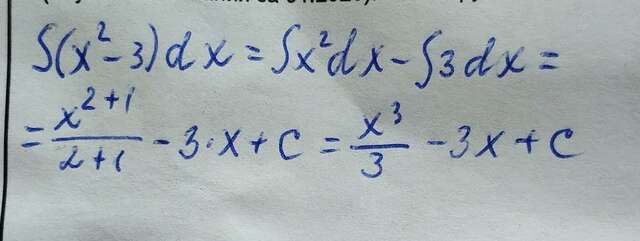 ∫(x²-3)dx = ∫x²dx - ∫3dx =
= x²⁺¹/2+1 - 3·x + C = x³/3 - 3x + C